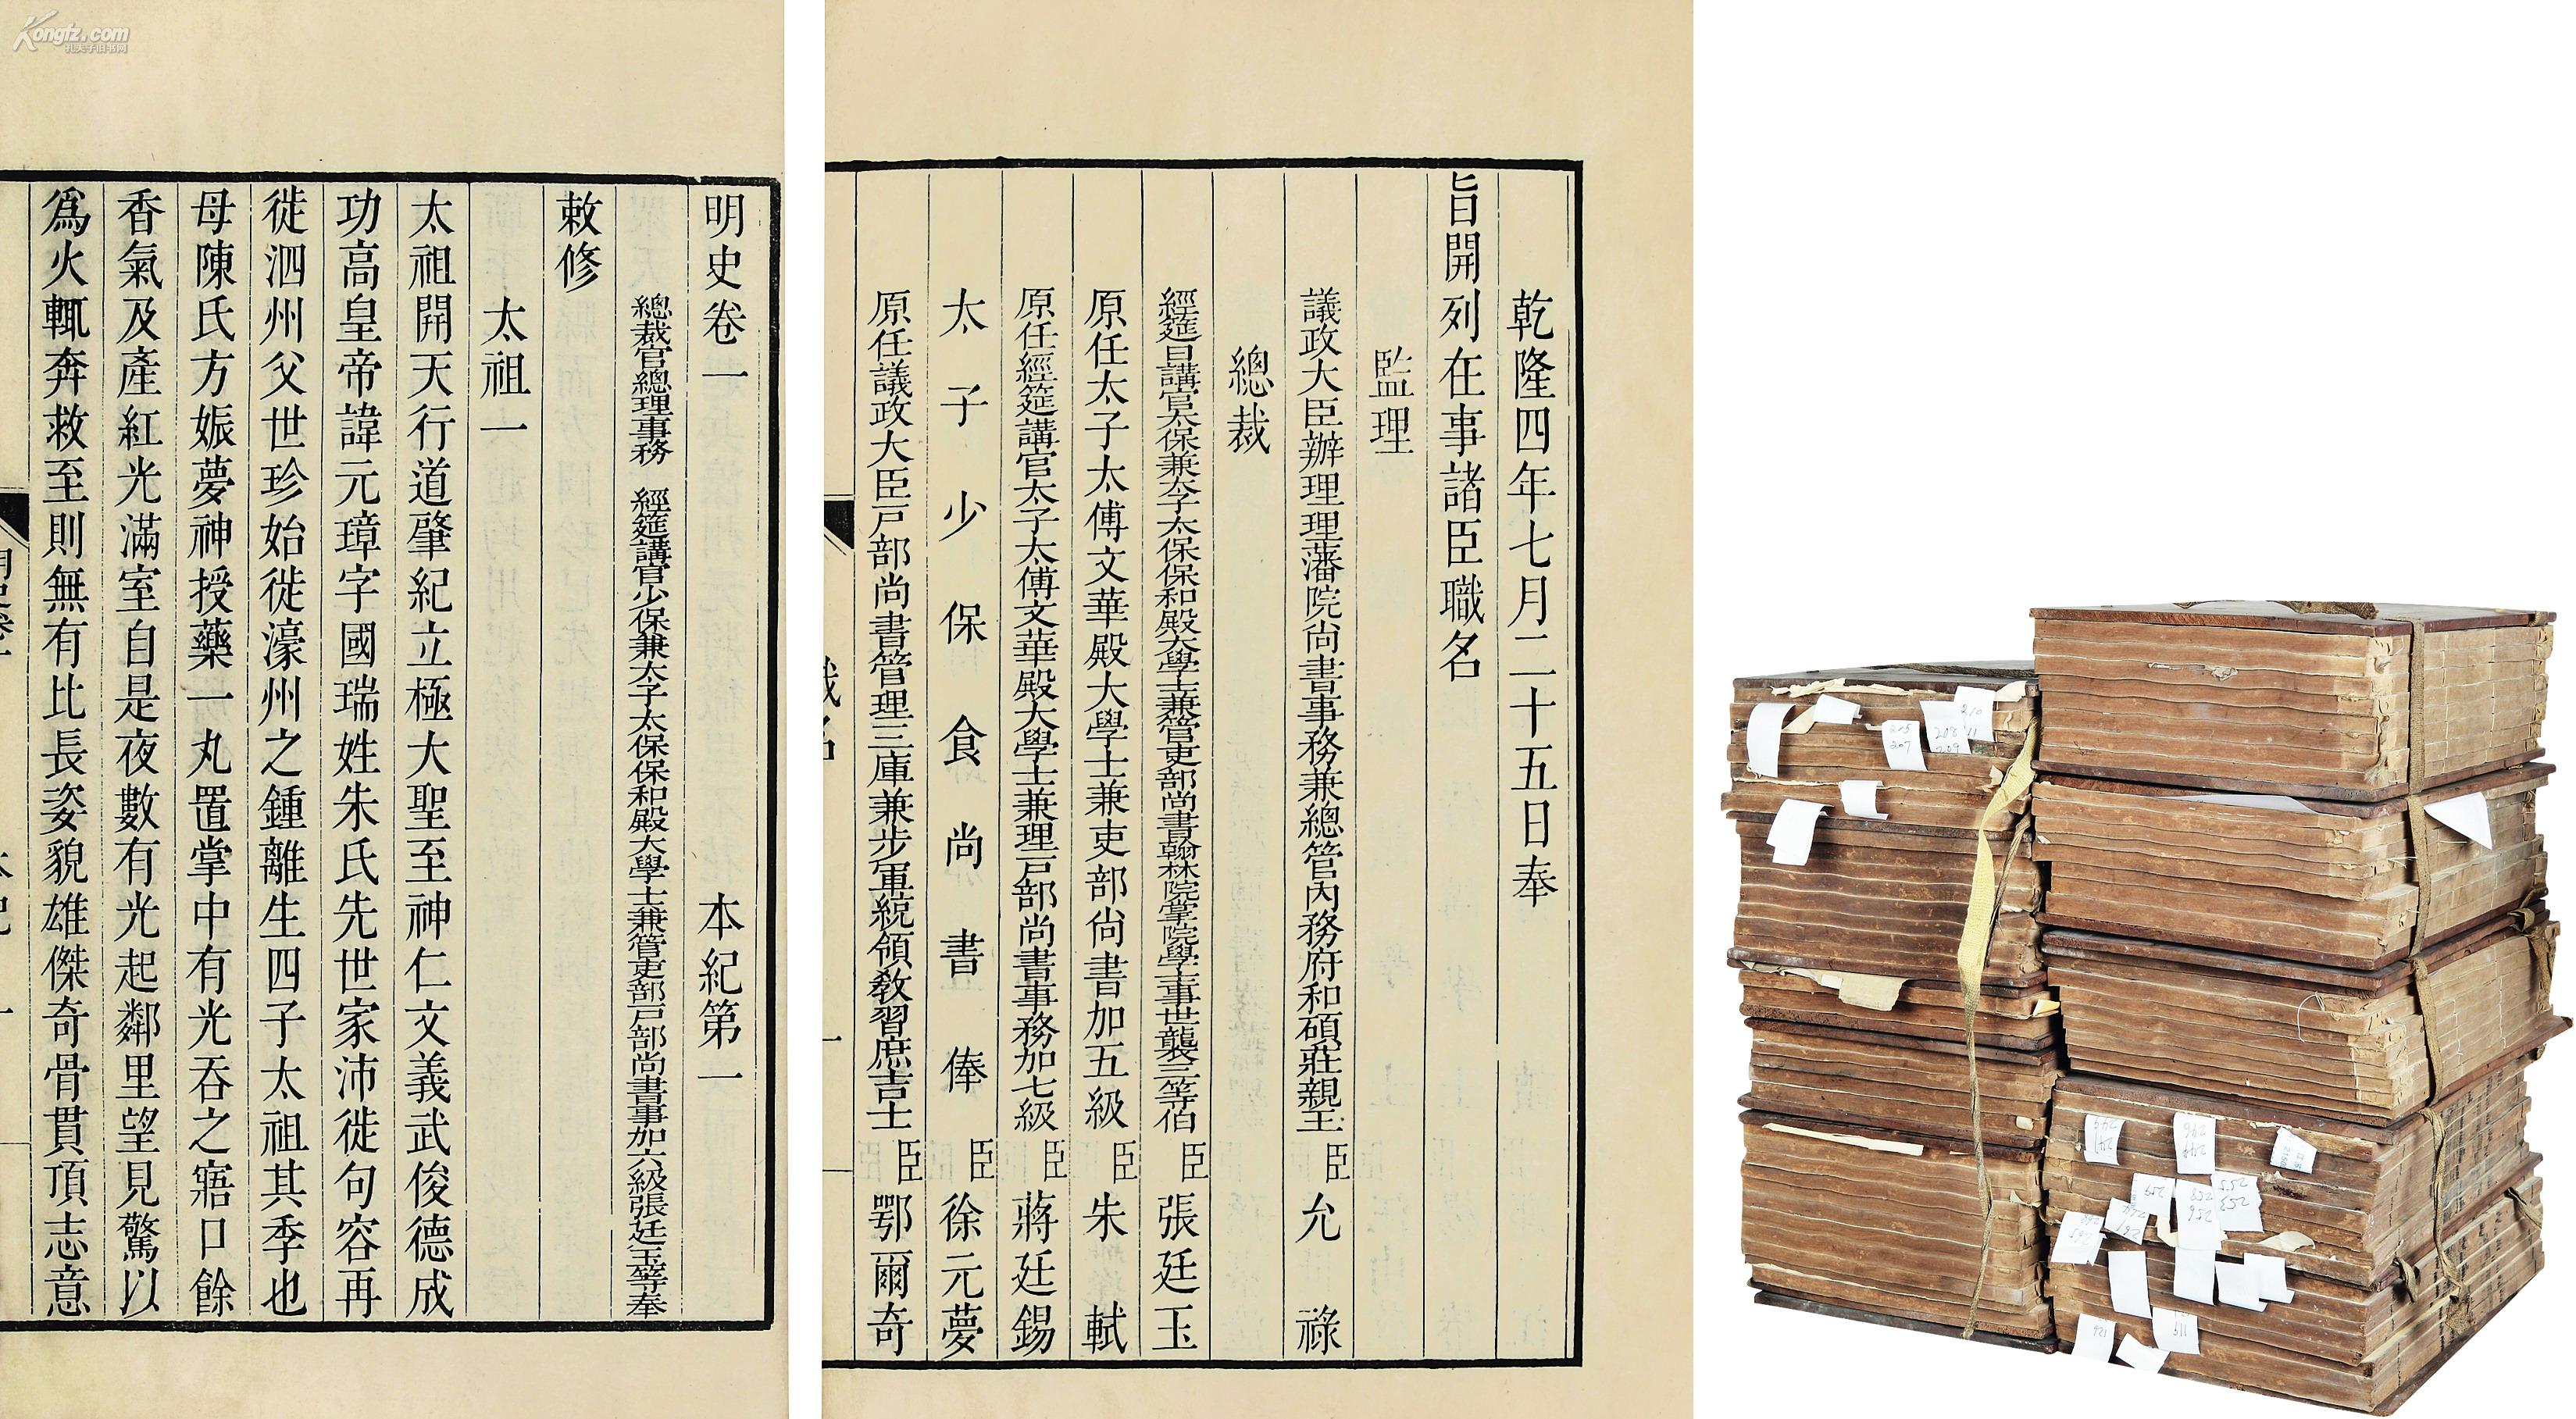 Kongfz.com
孔夫子旧书网
明史卷一　本紀第一
總裁官總理事務　經筵講官少保兼太子太保保和殿大學士兼管吏部戸部尚書事加六級張廷玉等奉
敕修
太祖一
太祖開天行道肇紀立極大聖至神仁文義武俊德成
功高皇帝諱元璋字國瑞姓朱氏先世家沛徙句容再
徙泗州父世珍始徙濠州之鍾離生四子太祖其季也
母陳氏方娠夢神授藥一丸置掌中有光吞之寤口餘
香氣及產紅光滿室自是夜數有光起鄰里望見驚以
爲火輒奔救至則無有比長姿貌雄傑奇骨貫頂志意
乾隆四年七月二十五日奉
旨開列在事諸臣職名
監理
議政大臣辦理理藩院尚書事務兼總管內務府和碩莊親王臣允祿
總裁
經筵日講官太保兼太子太保保和殿大學士兼管吏部尚書翰林院掌院學士事世襲三等伯臣張廷玉
原任太子太傅文華殿大學士兼吏部尚書加五級臣朱軾
原任經筵講官太子太傅文華殿大學士兼理戸部尚書事務加七級臣蔣廷錫
太子少保食尚書俸臣徐元夢
原任議政大臣戸部尚書管理三庫兼步軍統領教習庶吉士臣鄂爾奇
215
207
210
208 11
209